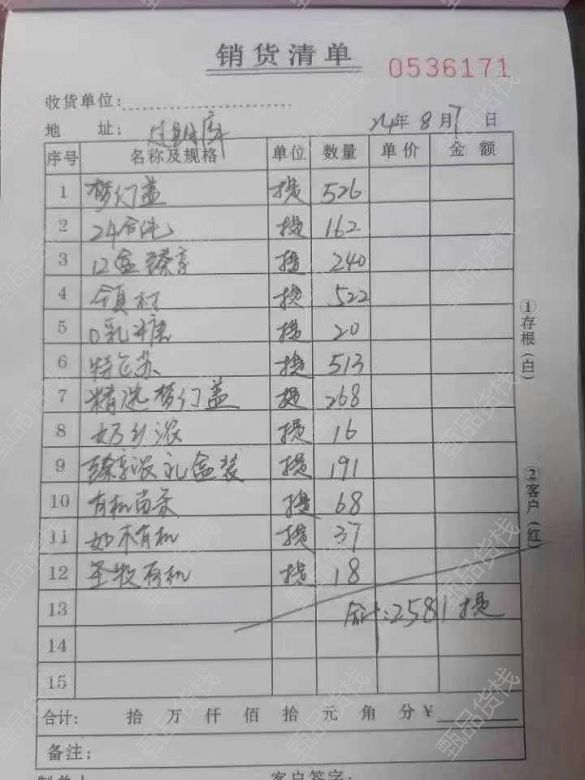 销货清单
0536171
收货单位:
地 址: 库 24年 8 月 7 日
序号 名称及规格 单位 数量 单价 金额
1 梦幻盖 提 526
2 24合纯 提 162
3 12盒臻享 提 240
4 提 522
5 0乳糖 提 20
6 特仑苏 提 513
7 精选梦幻盖 提 268
8 奶乡浓 提 16
9 臻享浓礼盒装 提 191
10 有机苗条 提 68
11 有机 提 37
12 圣牧有机 提 18
13 合计:2581提
14
15
合计: 拾 万 仟 佰 拾 元 角 分 ¥
备注:
制单人
客户签字:
①存根(白)
②客户(红)
甄品货栈